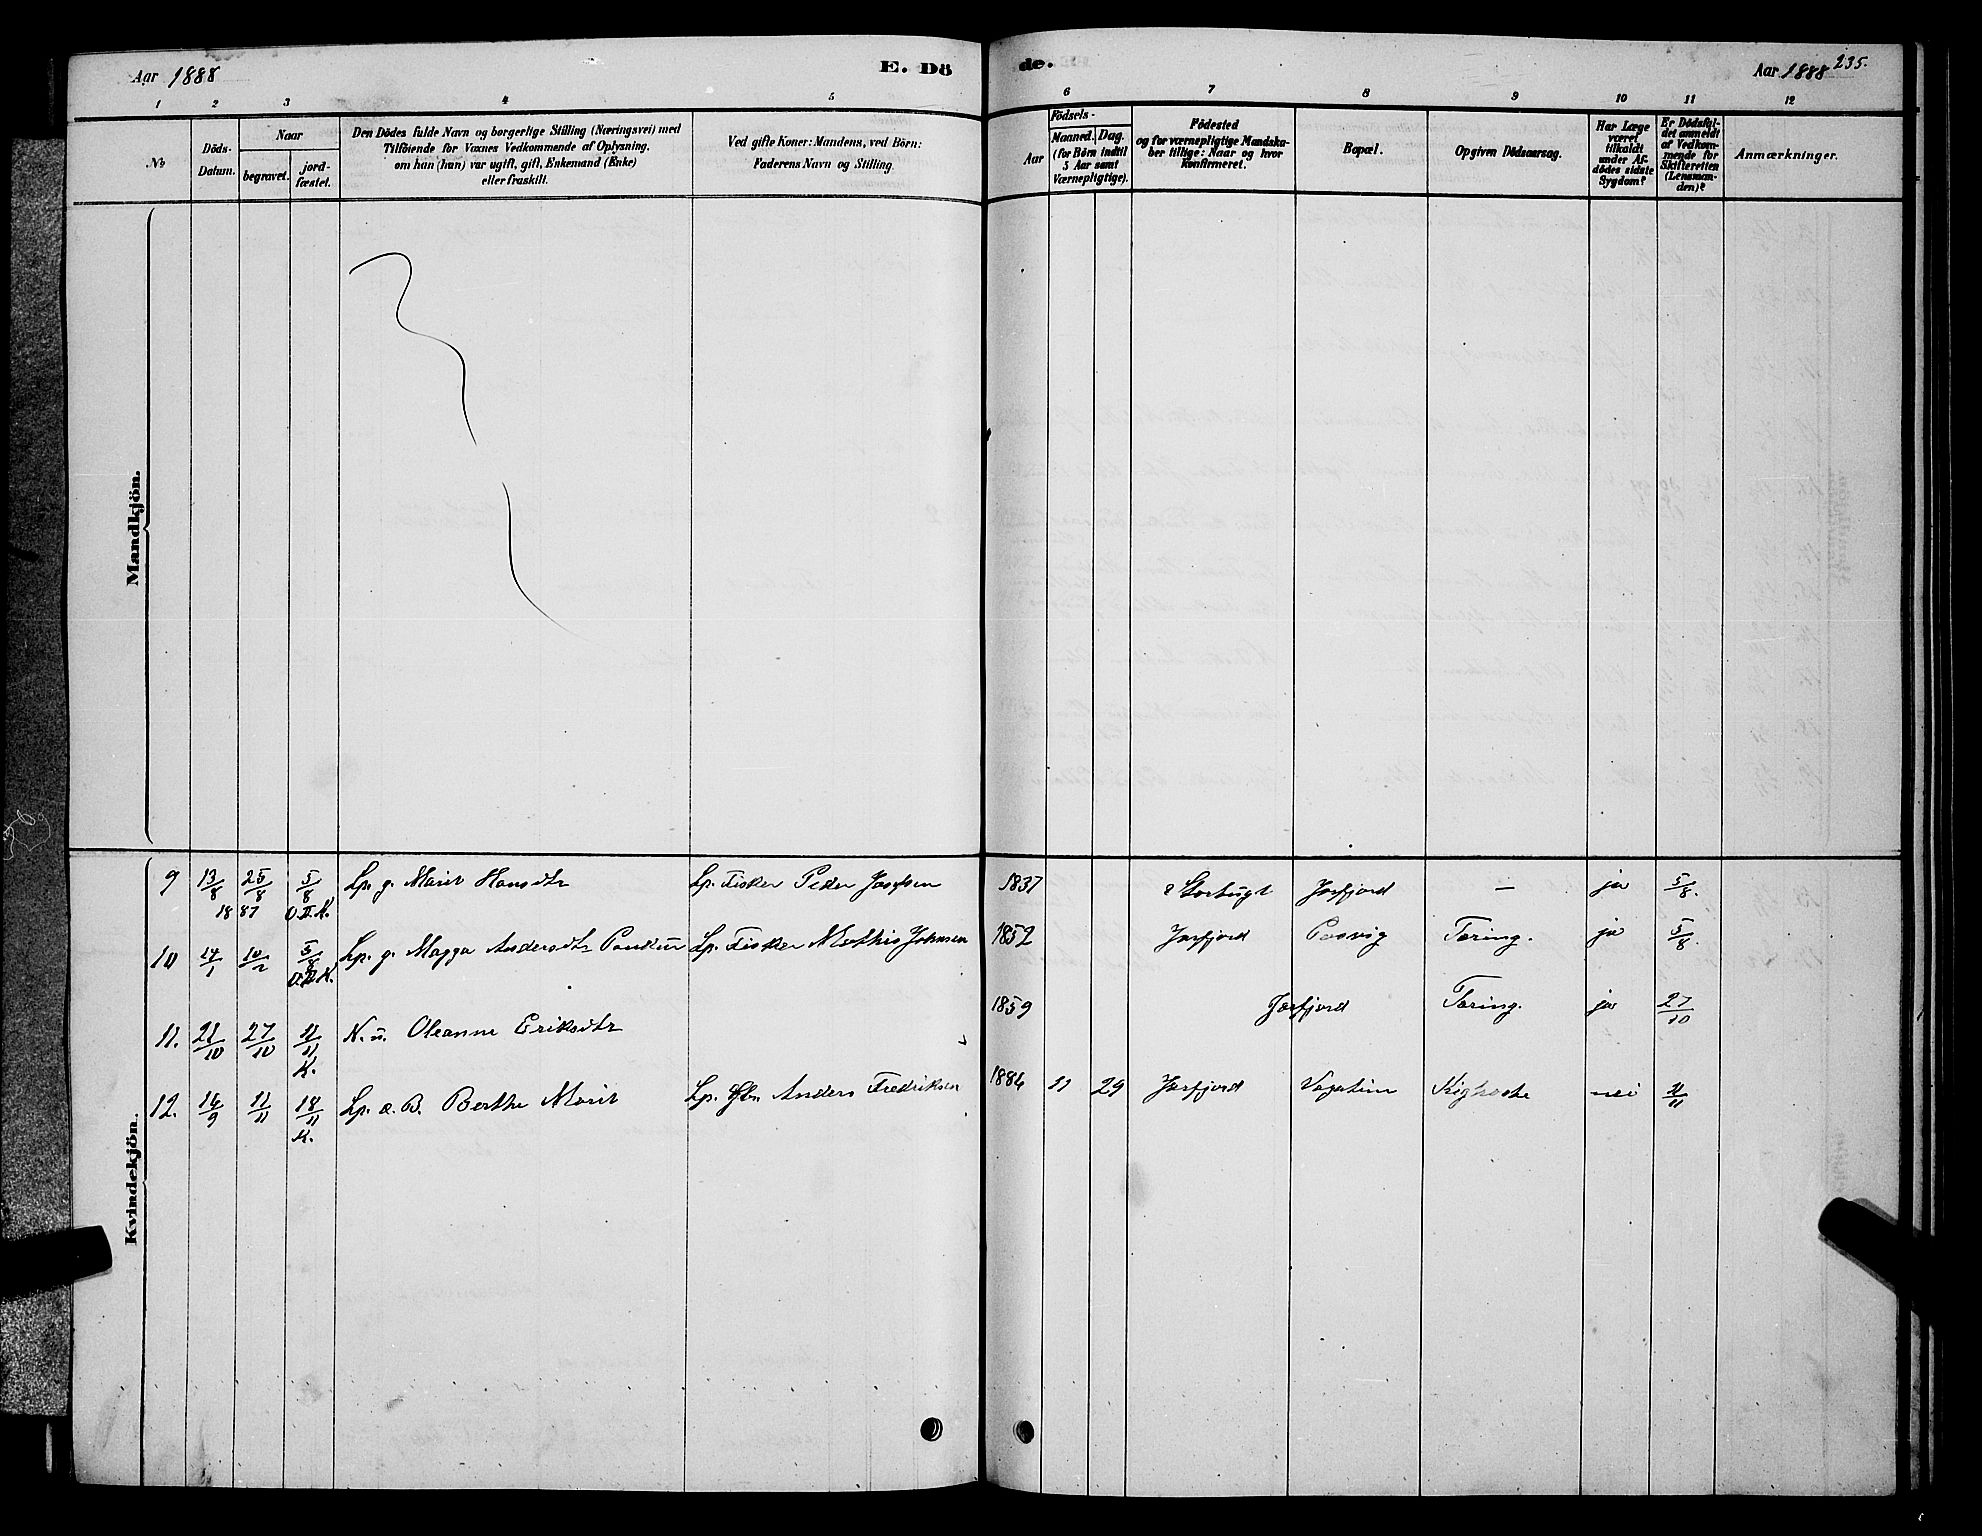 Aar 1888
E. Dö
de.
Aar 1888
235.
1 2 3 4 5 6 7 8 9 10 11 12
No
Döds-
Datum.
Naar
begravet.
jord-
fæstet.
Den Dödes fulde Navn og borgerlige Stilling (Næringsvei) med
Tilföiende for Voxnes Vedkommende af Oplysning.
om han (hun) var ugift, gift, Enkemand (Enke)
eller fraskilt.
Ved gifte Koner: Mandens, ved Börn:
Faderens Navn og Stilling.
Födsels-
Aar
Maaned.
Dag.
(for Börn indtil
5 Aar samt
Værnepligtige).
Födested
og for værnepligtige Mandska-
ber tillige: Naar og hvor
konfirmeret.
Bopæl.
Opgiven Dödsaarsag.
Har Læge
været
tilkaldt
under Af-
dödes sidste
Sygdom?
Er Dödsfal-
det anmeldt
af Vedkom-
mende for
Skifteretten
(Lensman-
den)?
Anmærkninger.
Mandkjön.
Kvindekjön.
9 13/8 25/8 5/8 Lp. g. Marit Hansdtr Lp. Fisker Peder Josefsen 1837 Jarfjord — ja 5/8.
1887 O.J.K.
10 14/1 10/2 5/8 Lp. g. Magga Andersdtr Lp. Fisker Mathis Johnsen 1852 Jarfjord Pasvig Tæring. ja 5/8.
11. 21/10 27/10 11/11 N. u. Oleanne Eriksdtr 1859 Jarfjord Tæring. ja 27/10
K.
12. 16/9 11/11 18/11 Lp. æ. B. Berthe Marit Lp. Gbr. Anders Fredriksen 1884 11 29 Jarfjord Kighoste nei 11/11
K.